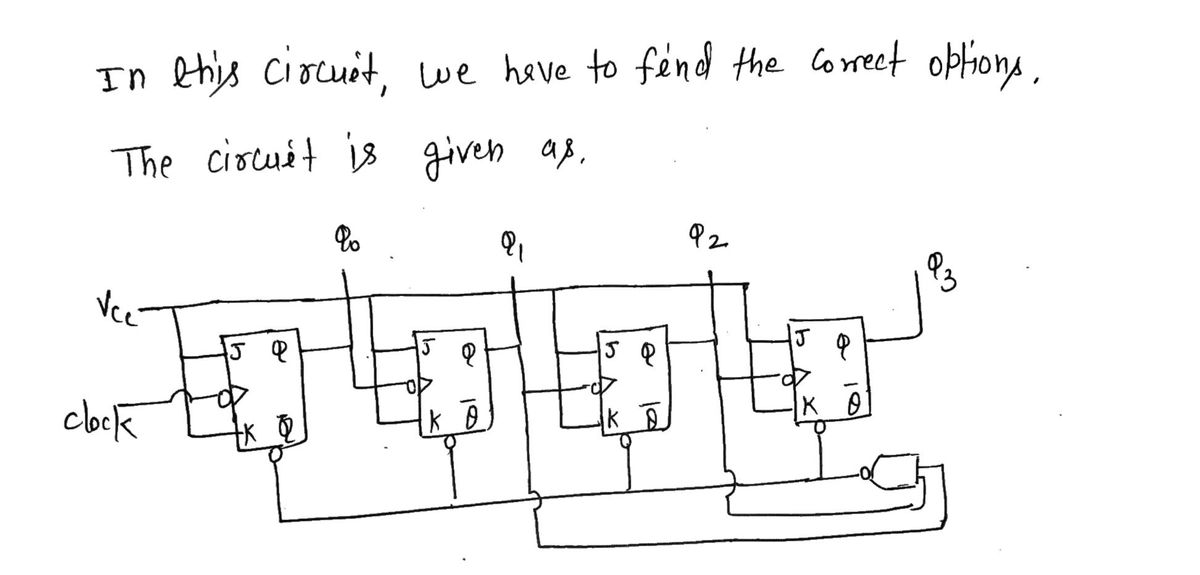 In this circuit, we have to find the correct options.
The circuit is given as.
Q0 Q1 Q2 Q3
Vcc
J Q J Q J Q J Q
clock
K Q̅ K Q̅ K Q̅ K Q̅